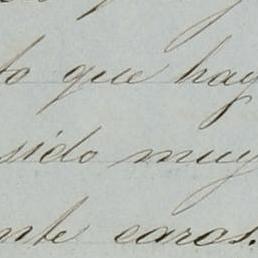 to que hay
sido muy
nte caros.